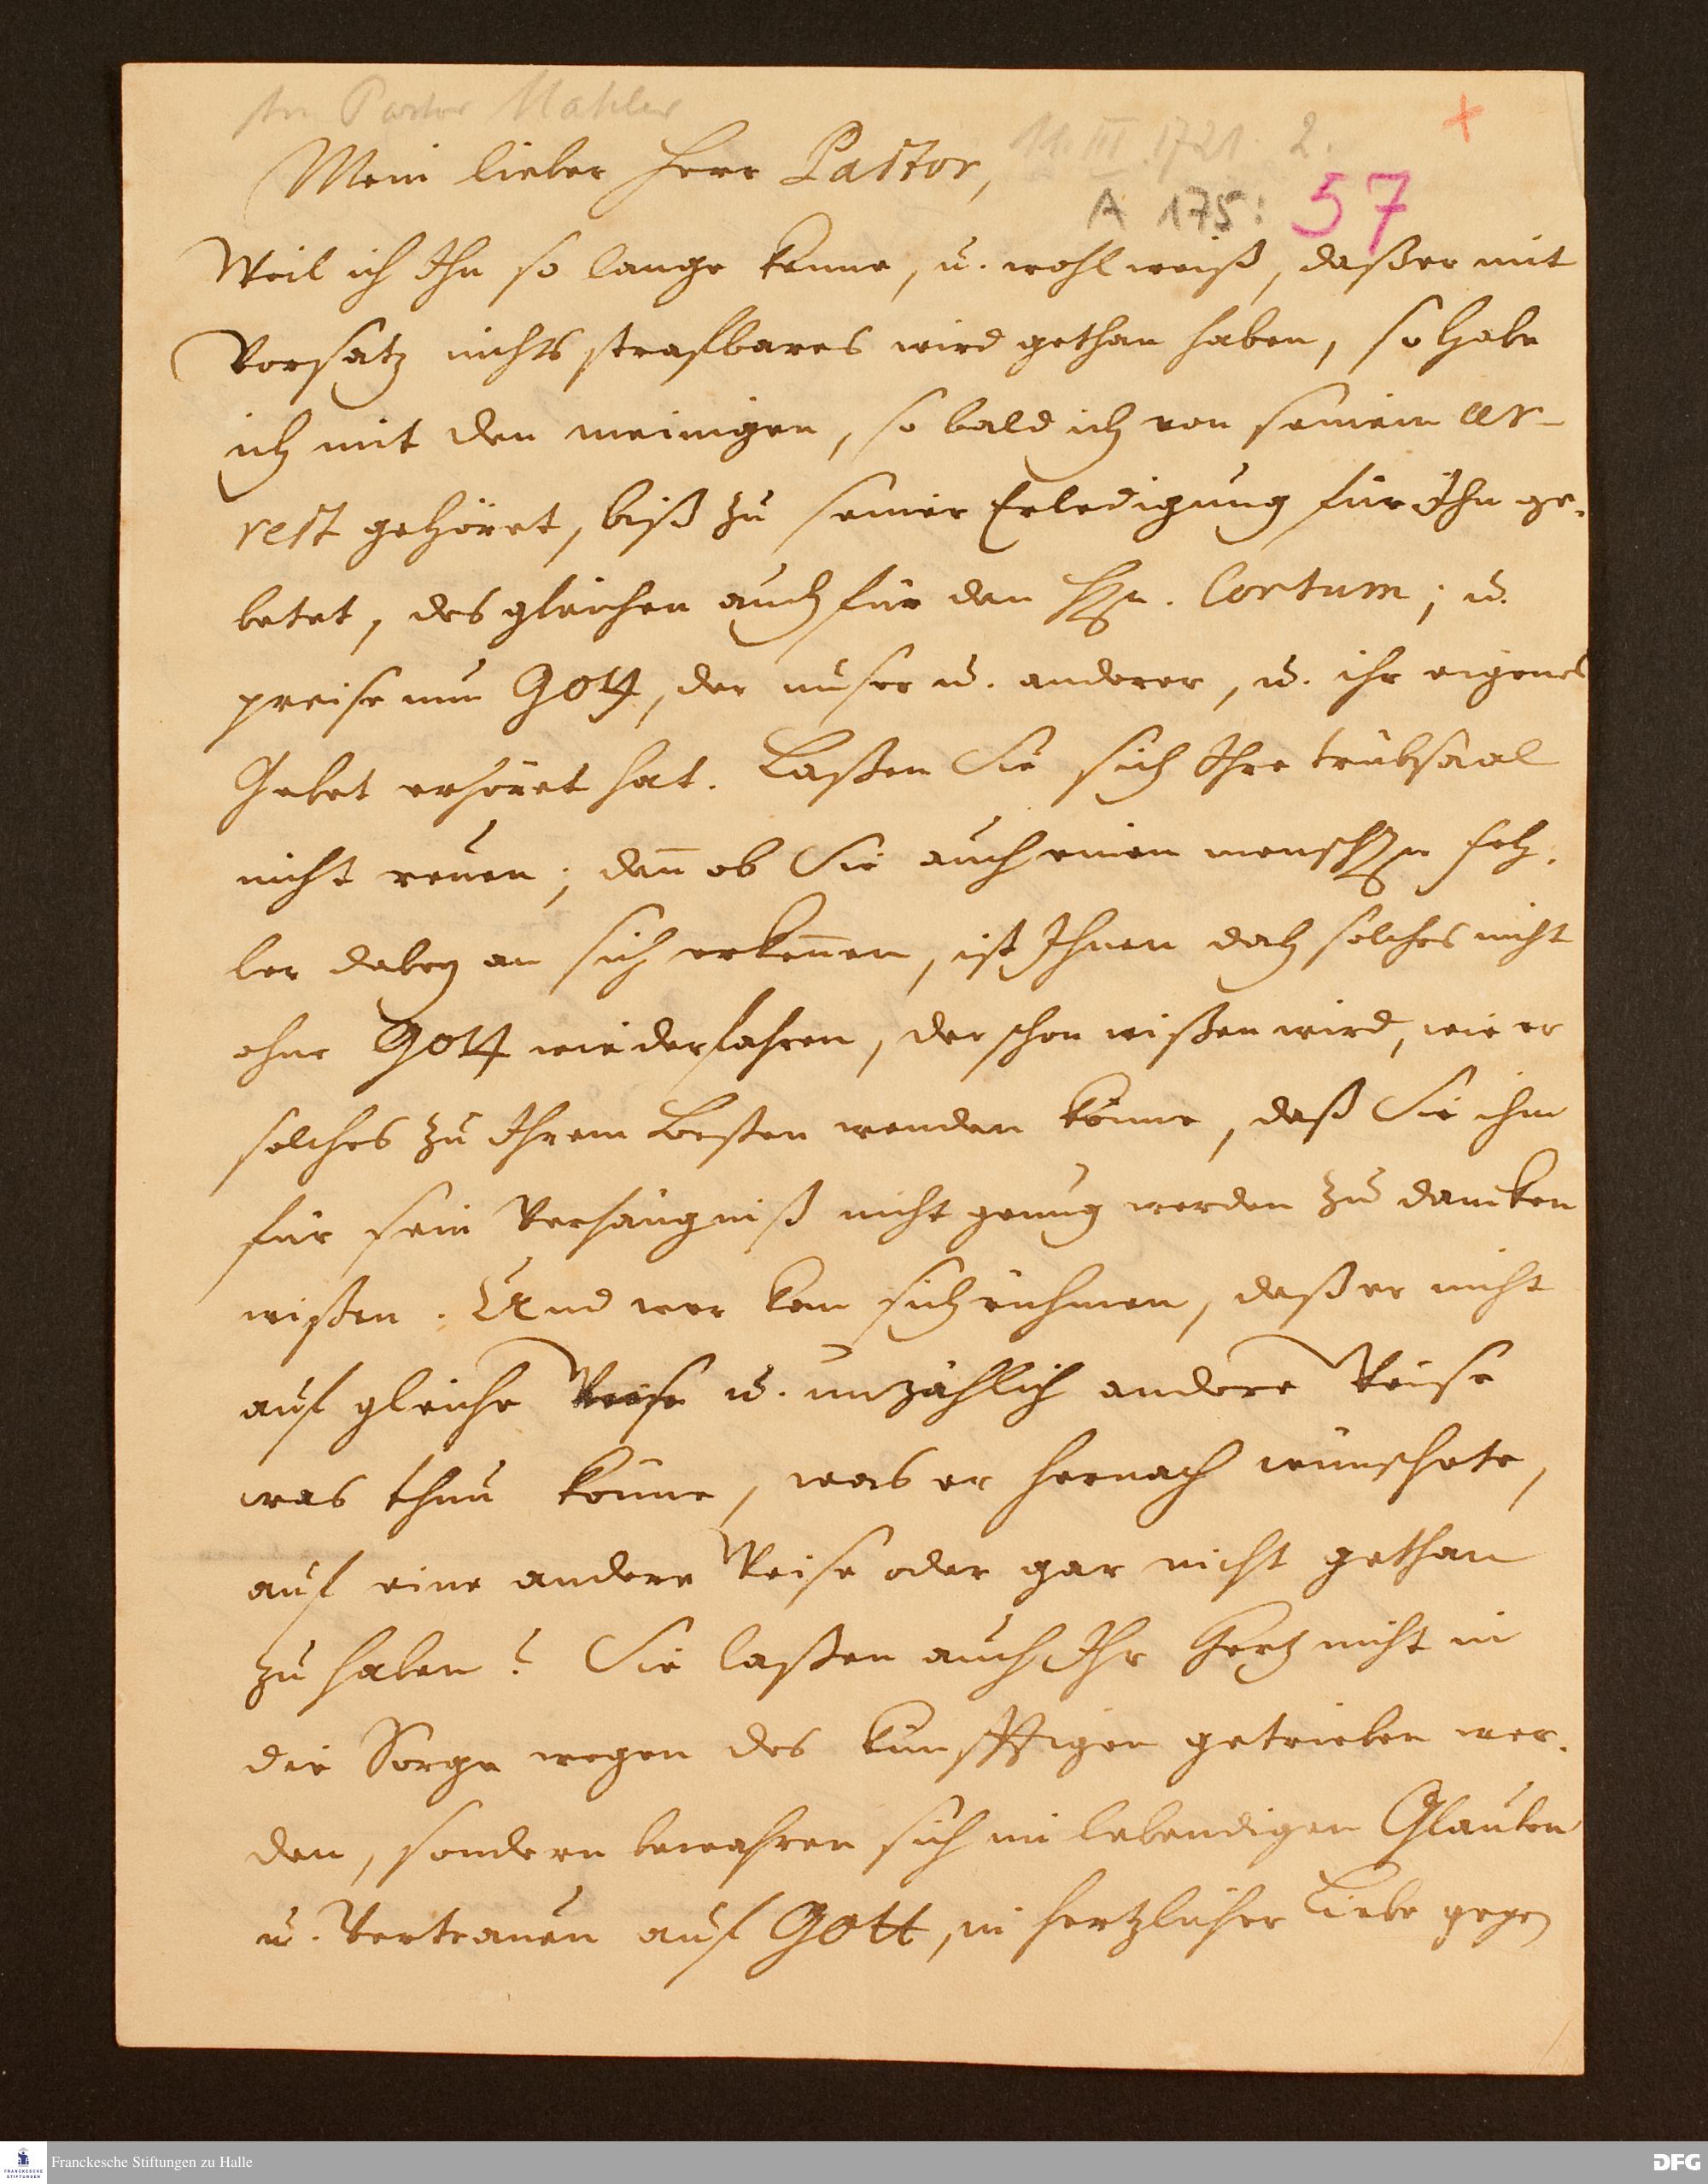 An Pastor Mahler
11. III. 1721. 2.
+
Mein lieber Herr Pastor,
A 175: 57
Weil ich Ihn so lange kenne, u. wohl weiß, daß er mit
Vorsatz nichts strafbares wird gethan haben, so habe
ich mit den meinigen, so bald ich von seinem Ar-
rest gehöret, biß zu seiner Erledigung für Ihn ge-
betet, des gleichen auch für den Hn. Cortum; u.
preise nun Gott, der unser u. anderer, u. ihr eigenes
Gebet erhöret hat. Laßen Sie sich Ihre trübsaal
nicht reuen; den̄ ob Sie auch einen menschln feh-
ler dabey an sich erken̄en, ist Ihnen doch solches nicht
ohne Gott wiederfahren, der schon wißen wird, wie er
solches zu Ihrem Besten wenden könne, daß Sie ihm
für sein Verhängniß nicht genug werden zu dancken
wißen. Und wer kan sich rühmen, daß er nicht
auf gleiche Weise u. unzählich andere Weise
was thun könne, was er hernach wünschete,
auf eine andere Weise oder gar nicht gethan
zu haben? Sie laßen auch Ihr Hertz nicht in
die Sorge wegen des künfftigen getrieben wer-
den, sondern bewahren sich im lebendigen Glauben
u. Vertrauen auf Gott, in hertzlicher Liebe gegen
FRANCKESCHE STIFTUNGEN
Franckesche Stiftungen zu Halle
DFG